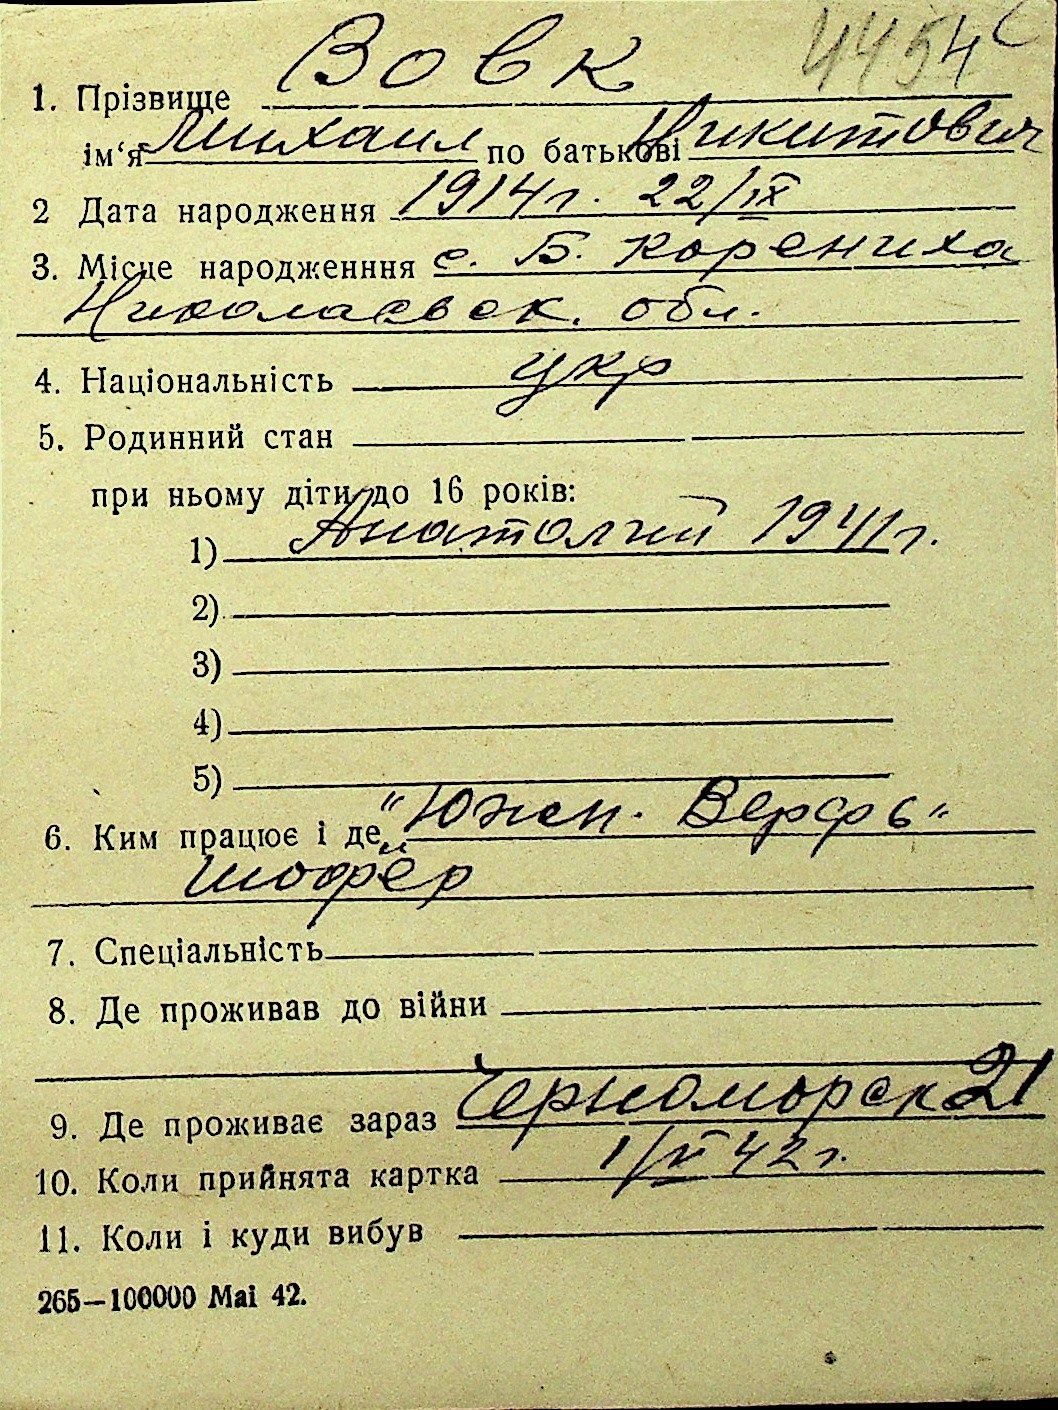 4454
1. Прізвище Вовк
ім‘я Михаил по батькові Никитович
2 Дата народження 1914 г. 22/IX
3. Місце народженння с. Б. Корениха
Николаевск. обл.
4. Національність укр
5. Родинний стан
при ньому діти до 16 років:
1) Анатолий 1941 г.
2)
3)
4)
5)
6. Ким працює і де „Южн. Верфь“
шофер
7. Спеціальність
8. Де проживав до війни
9. Де проживає зараз Черноморск 21
10. Коли прийнята картка 1/VI 42 г.
11. Коли і куди вибув
265—100000 Mai 42.